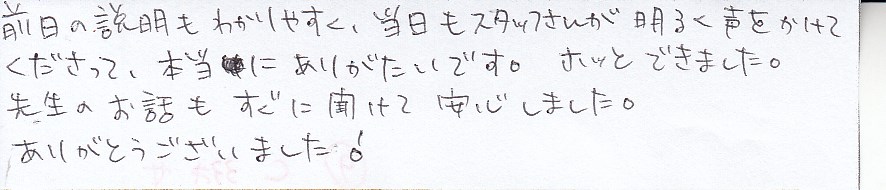 前日の説明もわかりやすく、当日もスタッフさんが明るく声をかけて
くださって、本当に ありがたいです。 ホッと できました。
先生の お話も すぐに 聞けて 安心しました。
ありがとうございました!